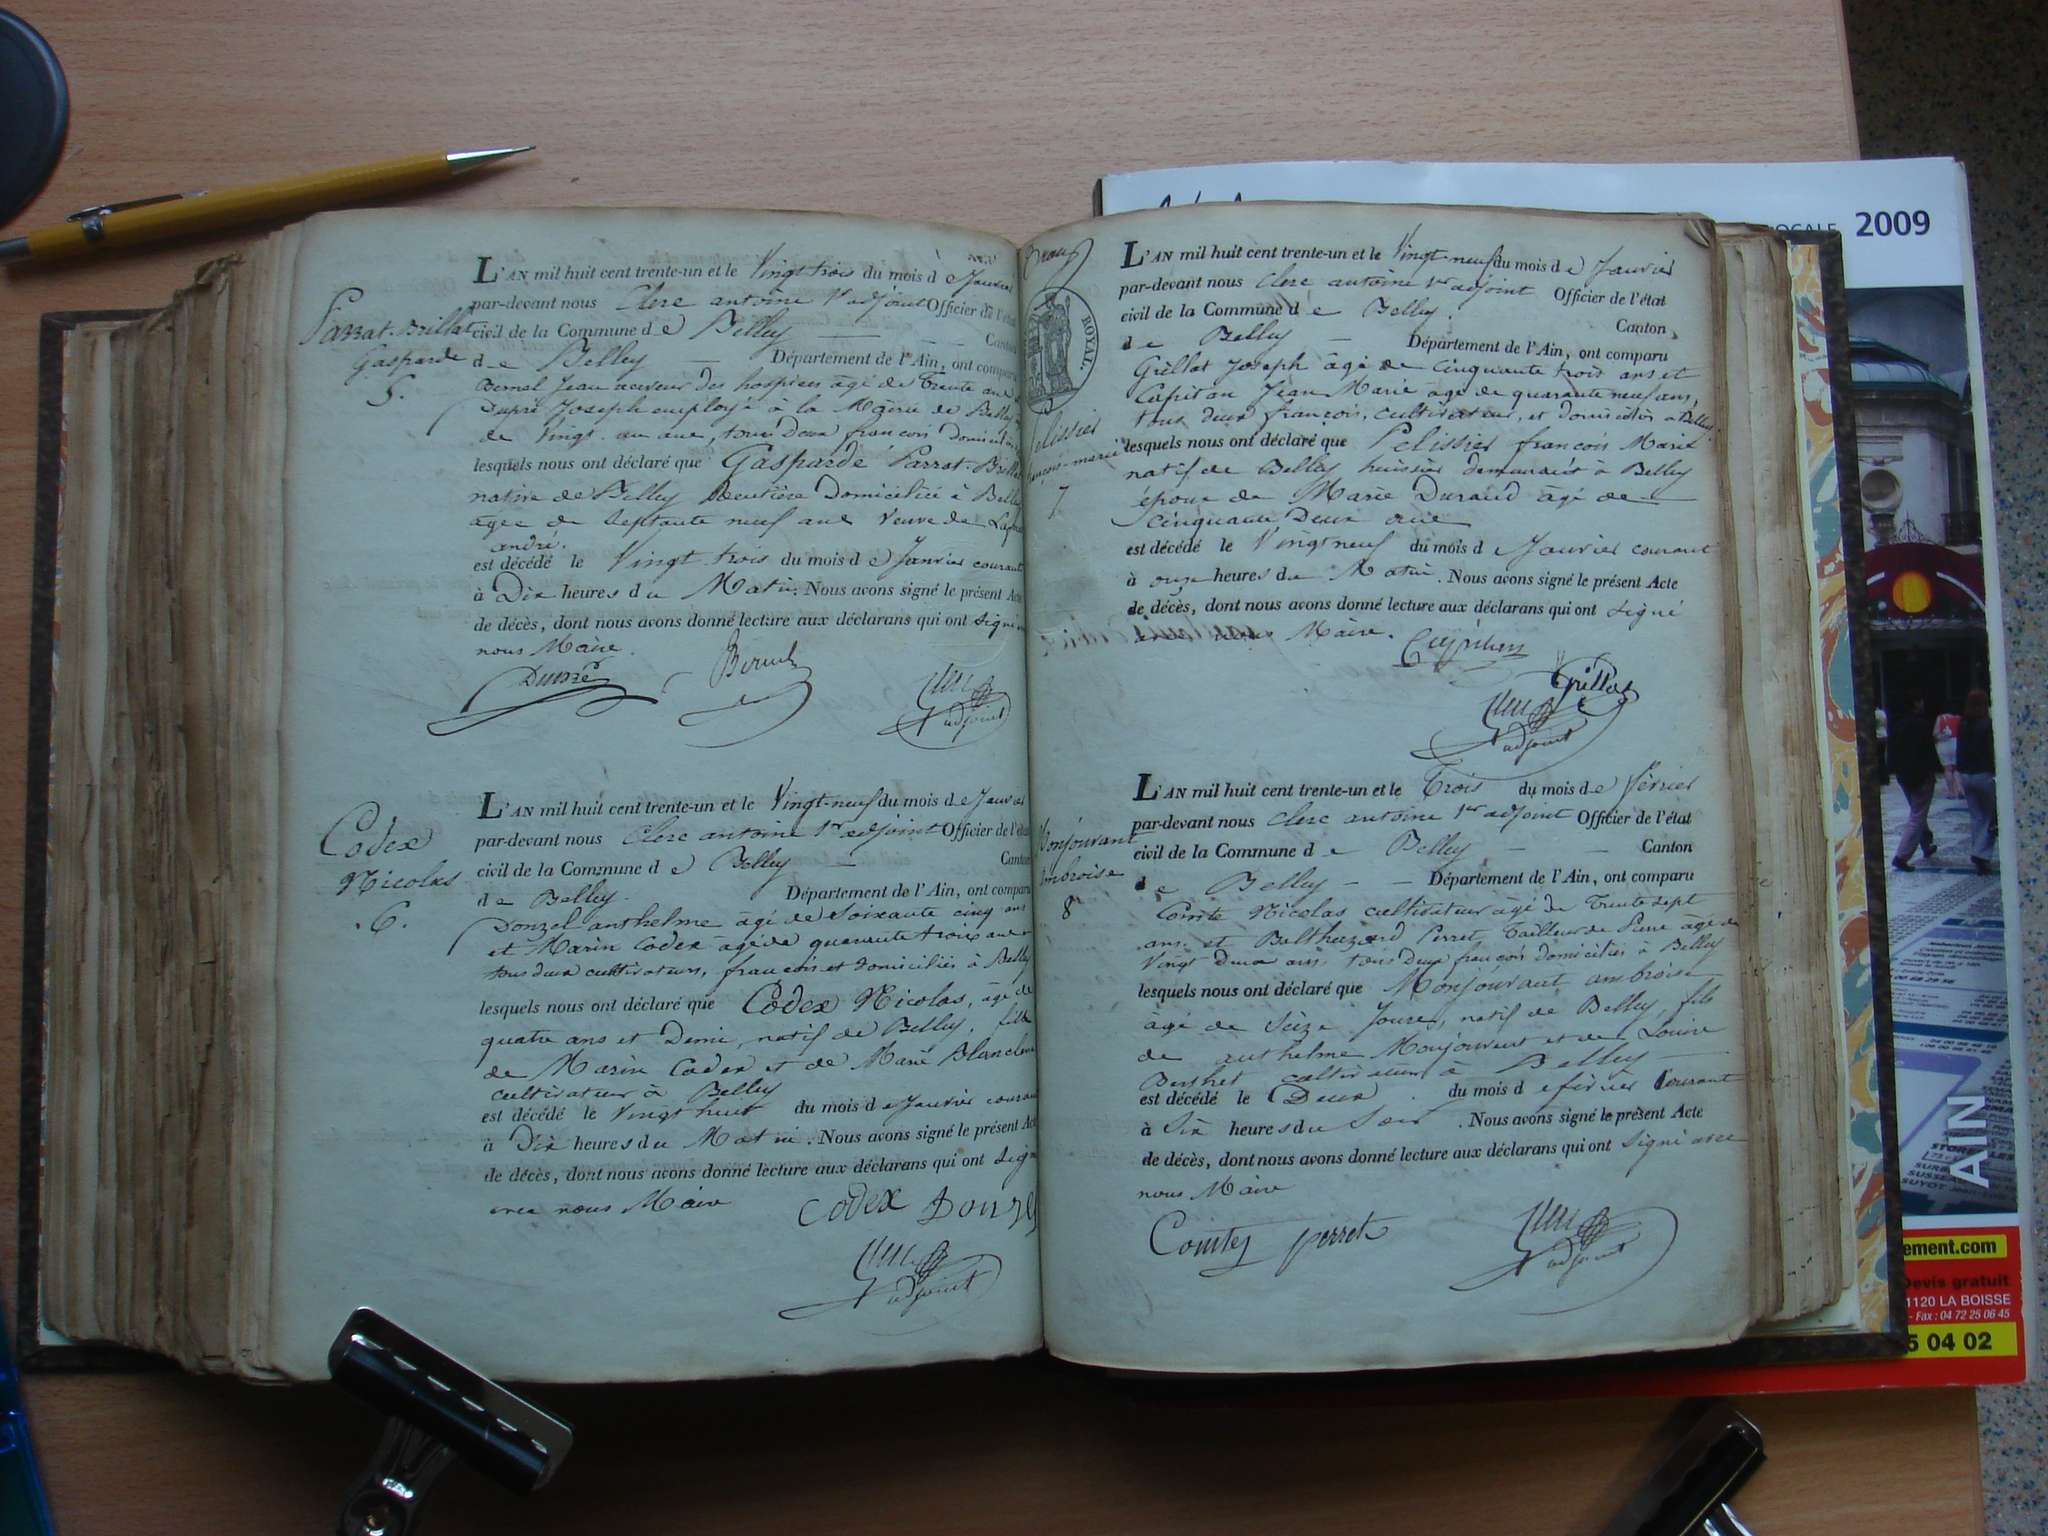 L'AN mil huit cent trente-un et le Vingt trois du mois de Janvier
par-devant nous Clerc antoine 1er adjoint Officier de l'état
civil de la Commune de Belley Canton
de Belley Département de l'Ain, ont comparu
Parrat-Brillat
Gasparde
5.
Bernel Jean receveur des hospices âgé de Trente ans et
Dupré Joseph employé à la Mairie de Belley
de Vingt un ans, tous Deux françois domiciliés
lesquels nous ont déclaré que Gasparde Parrat-Brillat
native de Belley Rentière Domiciliée à Belley
âgée de Septante neuf ans Veuve de
andré.
est décédé le Vingt trois du mois de Janvier courant
à Dix heures du Matin. Nous avons signé le présent Acte
de décès, dont nous avons donné lecture aux déclarans qui ont signé
nous Maire.
Dupré Bernel
adjoint
L'AN mil huit cent trente-un et le Vingt-neuf du mois de Janvier
par-devant nous Clerc antoine 1er adjoint Officier de l'état
civil de la Commune de Belley Canton
de Belley. Département de l'Ain, ont comparu
Codex
Nicolas
.6.
Donzel anthelme âgé de Soixante cinq ans
et Marin Codex âgé de quarante trois ans
tous deux cultivateurs, françois et domiciliés à Belley
lesquels nous ont déclaré que Codex Nicolas, âgé de
quatre ans et Demi, natif de Belley, fils
de Marin Codex et de Marie
cultivateur à Belley
est décédé le Vingt neuf du mois de Janvier courant
à Dix heures du Matin. Nous avons signé le présent Acte
de décès, dont nous avons donné lecture aux déclarans qui ont signé
avec nous Maire
Codex Donzel
adjoint
ROYAL.
L'AN mil huit cent trente-un et le Vingt-neuf du mois de Janvier
par-devant nous Clerc antoine 1er adjoint Officier de l'état
civil de la Commune de Belley. Canton
de Belley Département de l'Ain, ont comparu
Grillat Joseph âgé de Cinquante trois ans et
Capitan Jean Marie âgé de quarante neuf ans,
tous deux françois, cultivateurs, et domiciliés à Belley
Pelissier
françois-marie
7
lesquels nous ont déclaré que Pelissier françois Marie
natif de Belley huissier demeurant à Belley
époux de Marie Durand âgé de
Cinquante Deux ans
est décédé le Vingt neuf du mois de Janvier courant
à onze heures du Matin. Nous avons signé le présent Acte
de décès, dont nous avons donné lecture aux déclarans qui ont signé
Maire.
Grillat
adjoint
L'AN mil huit cent trente-un et le Trois du mois de février
par-devant nous Clerc antoine 1er adjoint Officier de l'état
civil de la Commune de Belley Canton
de Belley Département de l'Ain, ont comparu
Monjouvant
ambroise
8
Comte Nicolas cultivateur âgé de Trente sept
ans et Balthazard Perret Tailleur de Pierre âgé de
Vingt Deux ans tous Deux françois domiciliés à Belley
lesquels nous ont déclaré que Monjouvant ambroise
âgé de Seize Jours, natif de Belley, fils
de anthelme Monjouvent et de Louise
Berthet cultivateurs à Belley
est décédé le Deux du mois de février Courant
à Six heures du Soir. Nous avons signé le présent Acte
de décès, dont nous avons donné lecture aux déclarans qui ont signé avec
nous Maire
Comte perret
adjoint
2009
AIN
ement.com
Devis gratuit
1120 LA BOISSE
- Fax : 04 72 25 06 45
5 04 02